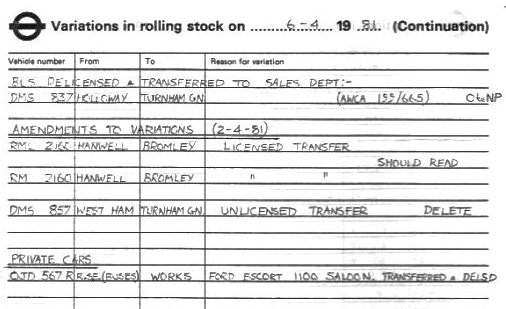 Variations in rolling stock on 6-4 19 81. (Continuation)
Vehicle number From To Reason for variation
BLS DELICENSED & TRANSFERRED TO SALES DEPT:-
DMS 837 HOLLOWAY TURNHAM GN. (AWCA 155/665) O to NP
AMENDMENTS TO VARIATIONS (2-4-81)
RML 2160 HANWELL BROMLEY LICENSED TRANSFER
SHOULD READ
RM 2160 HANWELL BROMLEY " "
DMS 857 WEST HAM TURNHAM GN. UNLICENSED TRANSFER DELETE
PRIVATE CARS
OJD 567 R R.S.E.(BUSES) WORKS FORD ESCORT 1100 SALOON. TRANSFERRED & DELSD